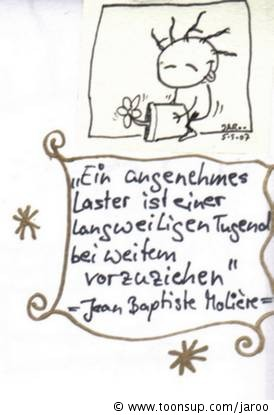 JAR..
5-1-07
„Ein angenehmes
Laster ist einer
langweiligen Tugend
bei weitem
vorzuziehen"
= Jean Baptiste Molière =
© www.toonsup.com/jaroo